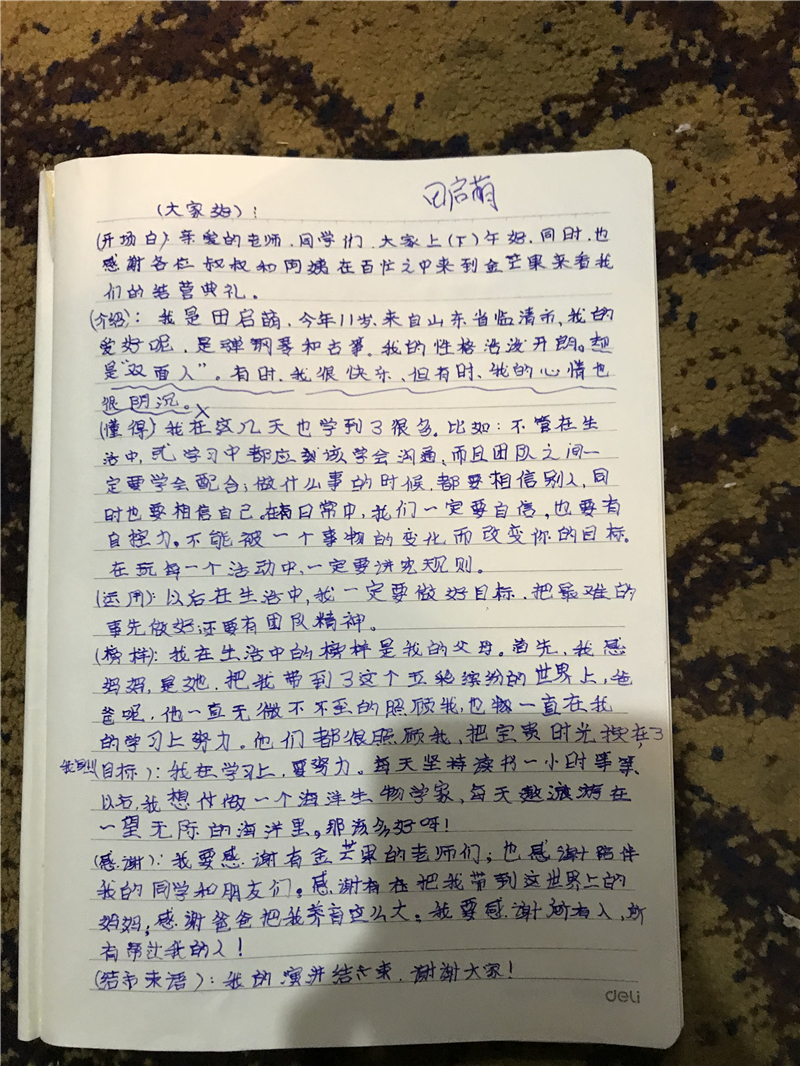 田启萌
(大家好):
(开场白):亲爱的老师.同学们.大家上(下)午好.同时.也
感谢各位叔叔和阿姨在百忙之中来到金芒果来看我
们的结营典礼。
(介绍):我是田启萌.今年11岁.来自山东省临清市.我的
爱好呢,是弹钢琴和古筝.我的性格活泼开朗。想
是“双面人”。有时.我很快乐.但有时.我的心情也
很阴沉。
(懂得)我在这几天也学到了很多。比如:不管在生
活中,或学习中都应该学会沟通,而且团队之间一
定要学会配合;做什么事的时候.都要相信别人,同
时也要相信自己.在日常中,我们一定要自信,也要有
自控力。不能被一个事物的变化而改变你的目标.
在玩每一个活动中,一定要讲究规则。
(运用):以后在生活中,我一定要做好目标.把最难的
事先做好还要有团队精神。
(榜样):我在生活中的榜样是我的父母。首先,我感
妈妈,是她,把我带到了这个五轮缤纷的世界上,爸
爸呢,他一直无微不不至的照顾我,也一直在我
的学习上努力。他们都很照顾我,把宝贵时光按在了
(目标):我在学习上,要努力。每天坚持读书一小时等等.
以后,我想什做一个海洋生物学家,每天遨游在
一望无际的海洋里。那该多好呀!
(感谢):我要感谢有金芒果的老师们;也感谢陪伴
我的同学和朋友们。感谢有在把我带到这世界上的
妈妈,感谢爸爸把我养育这么大。我要感谢所有人,所
有帮过我的人!
(结束来语):我的演讲结束,谢谢大家!
deli